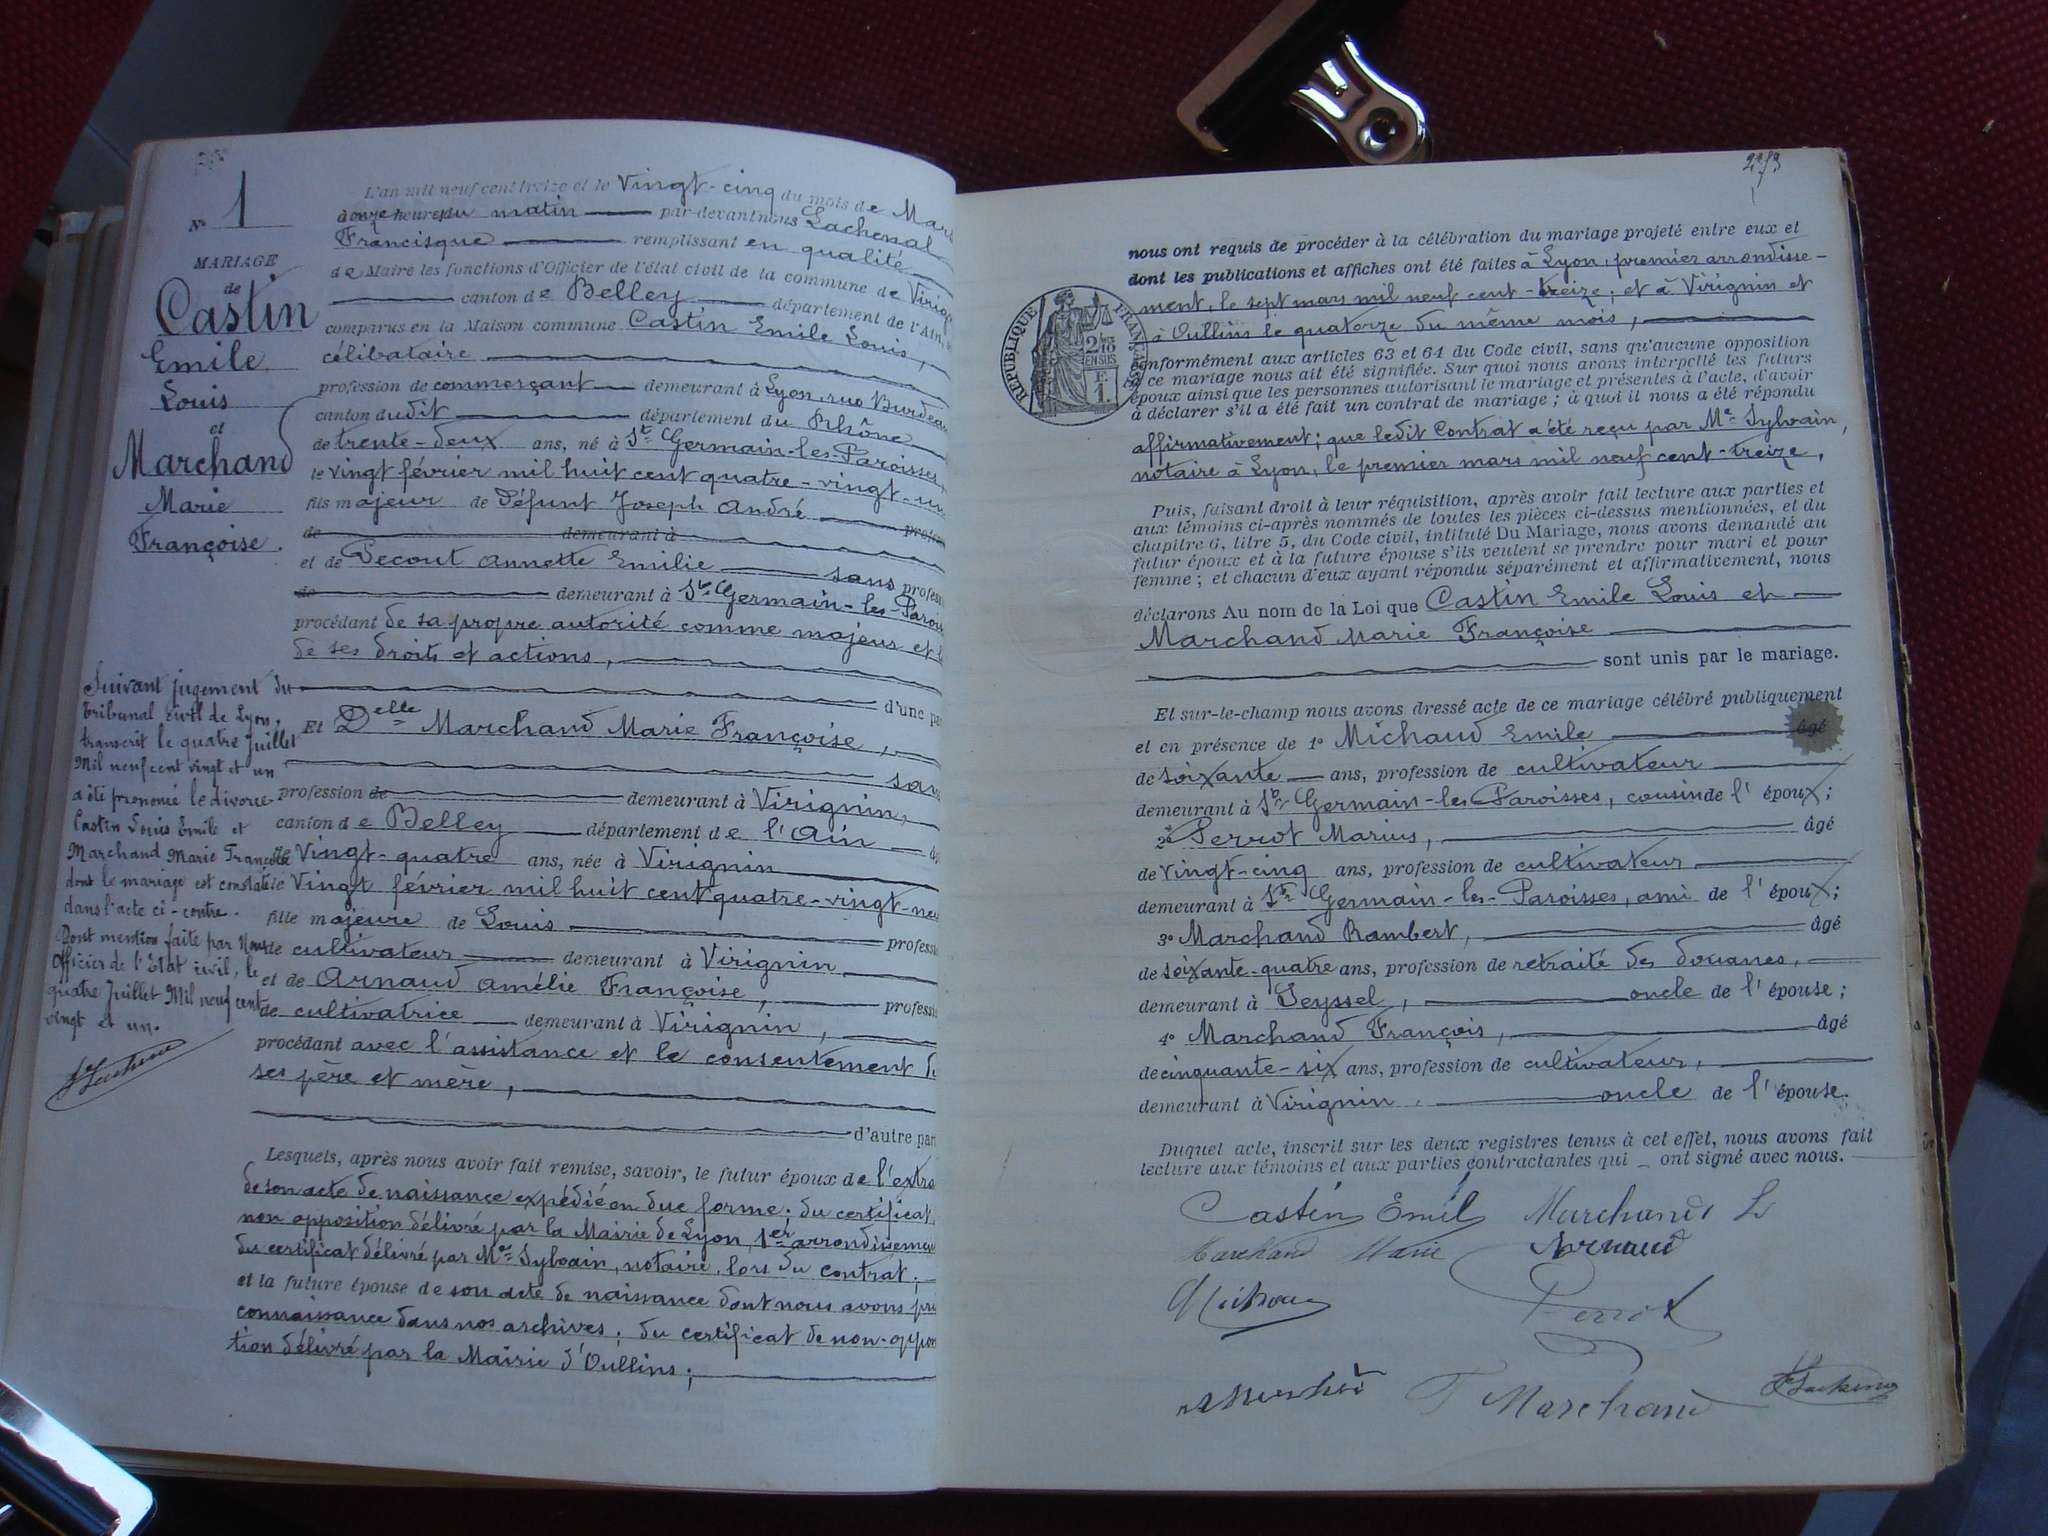 N° 1
MARIAGE
de
Castin
Emile
Louis
et
Marchand
Marie
Françoise.
Suivant jugement du
tribunal civil de Lyon,
transcrit le quatre Juillet
Mil neuf cent vingt et un
a été prononcé le divorce
Castin Louis Emile et
Marchand Marie Françoise
dont le mariage est constaté
dans l'acte ci-contre.
Dont mention faite par Nous
Officier de l'Etat civil, le
quatre Juillet Mil neuf cent
vingt et un.
L'an mil neuf cent treize et le Vingt-cinq du mois de Mars
à onze heures du matin par-devant nous Lachenal
Francisque remplissant en qualité
de Maire les fonctions d'Officier de l'état civil de la commune de Virig
canton de Belley département de l'Ain,
comparus en la Maison commune Castin Emile Louis,
célibataire
profession de commerçant demeurant à Lyon, rue Burdeau
canton dudit département du Rhône
de trente-deux ans, né à St Germain-les-Paroisses,
le vingt février mil huit cent quatre-vingt-un
fils majeur de Défunt Joseph André
de demeurant à profes
et de Pecout Annette Emilie sans profess
de demeurant à St Germain-les-Parois
procédant de sa propre autorité comme majeur et
de ses droits et actions,
d'une par
Et Delle Marchand Marie Françoise,
sans
profession de demeurant à Virignin,
canton de Belley département de l'Ain
de Vingt-quatre ans, née à Virignin
le Vingt février mil huit cent quatre-vingt-neu
fille majeure de Louis professi
de cultivateur demeurant à Virignin
et de Arnaud Amélie Françoise, professi
de cultivatrice demeurant à Virignin,
procédant avec l'assistance et le consentement de
ses père et mère,
d'autre par
Lesquels, après nous avoir fait remise, savoir, le futur époux de l'extra
de son acte de naissance expédié en due forme; du certificat
non opposition délivré par la Mairie de Lyon, 1er arrondissement
du certificat délivré par Me Sylvain, notaire, lors du contrat;
et la future épouse de son acte de naissance dont nous avons pris
connaissance dans nos archives; du certificat de non-oppo
tion délivré par la Mairie d'Oullins;
nous ont requis de procéder à la célébration du mariage projeté entre eux et
dont les publications et affiches ont été faites à Lyon, premier arrondisse-
ment, le sept mars mil neuf cent-treize; et à Virignin et
à Oullins le quatorze du même mois,
RÉPUBLIQUE FRANÇAISE
2/10
EN SUS
1 F.
conformément aux articles 63 et 64 du Code civil, sans qu'aucune opposition
à ce mariage nous ait été signifiée. Sur quoi nous avons interpellé les futurs
époux ainsi que les personnes autorisant le mariage et présentes à l'acte, d'avoir
à déclarer s'il a été fait un contrat de mariage; à quoi il nous a été répondu
affirmativement; que ledit Contrat a été reçu par Me Sylvain,
notaire à Lyon, le premier mars mil neuf cent-treize,
Puis, faisant droit à leur réquisition, après avoir fait lecture aux parties et
aux témoins ci-après nommés de toutes les pièces ci-dessus mentionnées, et du
chapitre 6, titre 5, du Code civil, intitulé Du Mariage, nous avons demandé au
futur époux et à la future épouse s'ils veulent se prendre pour mari et pour
femme; et chacun d'eux ayant répondu séparément et affirmativement, nous
déclarons Au nom de la Loi que Castin Emile Louis et
Marchand Marie Françoise
sont unis par le mariage.
Et sur-le-champ nous avons dressé acte de ce mariage célébré publiquement
et en présence de 1° Michaud Emile âgé
de soixante ans, profession de cultivateur
demeurant à St Germain-les-Paroisses, cousin de l'époux;
2° Perrot Marius, âgé
de vingt-cinq ans, profession de cultivateur
demeurant à St Germain-les-Paroisses, ami de l'époux;
3° Marchand Rambert, âgé
de soixante-quatre ans, profession de retraité des douanes,
demeurant à Seyssel, oncle de l'épouse;
4° Marchand François, âgé
de cinquante-six ans, profession de cultivateur,
demeurant à Virignin. oncle de l'épouse.
Duquel acte, inscrit sur les deux registres tenus à cet effet, nous avons fait
lecture aux témoins et aux parties contractantes qui ont signé avec nous.
Castin Emile Marchand L
Marchand Marie Arnaud
Michaud Perrot
Marchand F Marchand